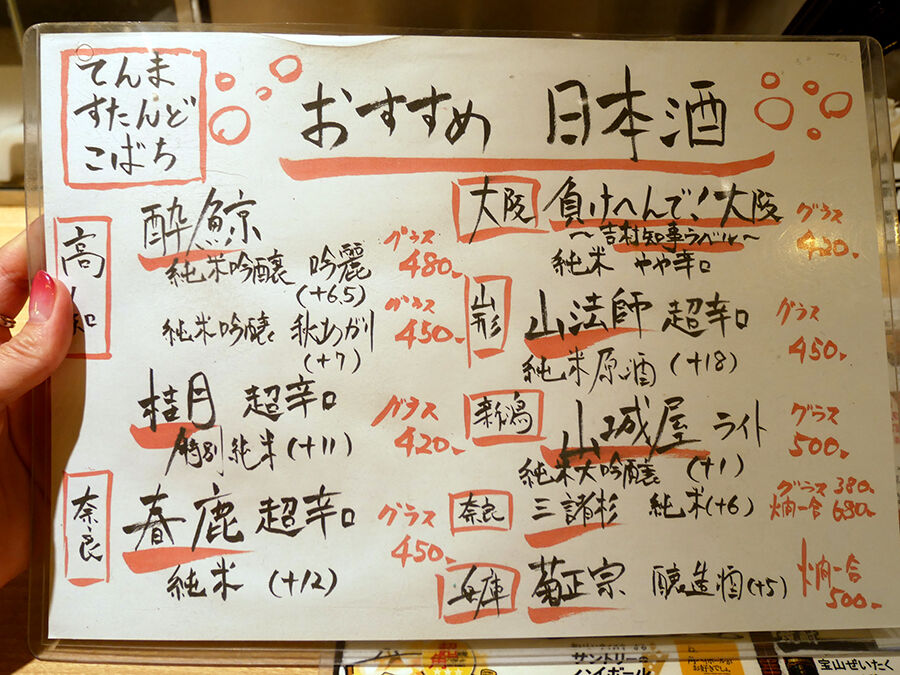 てんま
すたんど
こばち
おすすめ 日本酒
高知
酔鯨
純米吟醸 吟麗 グラス 480-
(+6.5)
純米吟醸 秋あがり グラス 450-
(+7)
桂月 超辛口 グラス 420-
特別純米 (+11)
奈良
春鹿 超辛口 グラス 450-
純米 (+12)
大阪 負けへんで!大阪 グラス 420-
~吉村知事ラベル~
純米 やや辛口
山形 山法師 超辛口 グラス 450-
純米原酒 (+18)
新潟 山城屋 ライト グラス 500-
純米大吟醸 (+1)
奈良 三諸杉 純米(+6) グラス 380-
燗一合 680-
兵庫 菊正宗 醸造酒(+5) 燗一合 500-
サントリー
ハイボール
宝山ぜいたく